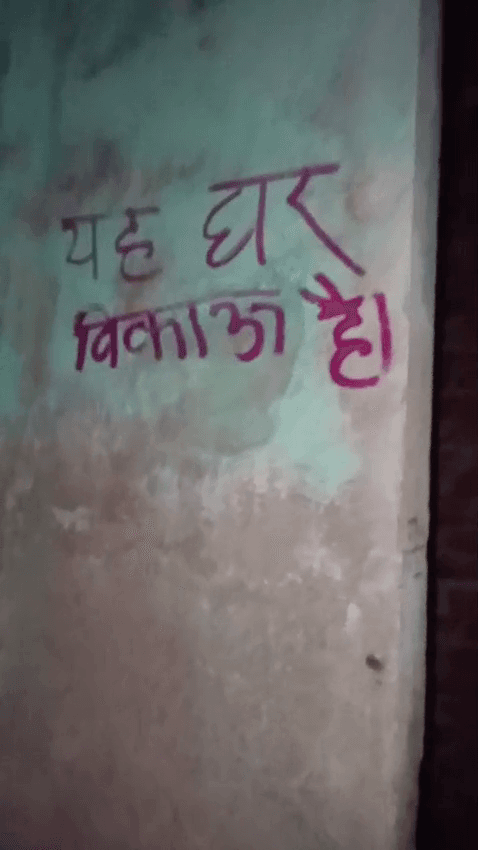 यह घर
विकाऊ है।